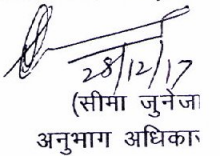 28/12/17
(सीमा जुनेजा
अनुभाग अधिकार